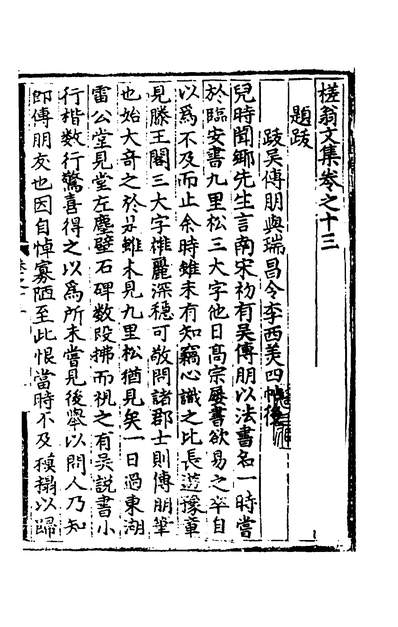 槎翁文集卷之十三
題跋
跋吴傅朋與瑞昌令李西美四帖後
兒時聞鄉先生言南宋初有吴傅朋以法書名一時嘗
於臨安書九里松三大字他日髙宗屡書欲易之卒自
以爲不及而止余時雖未有知竊心識之比長逰豫章
見滕王閣三大字雄麗深穩可敬問諸郡士則傅朋筆
也始大竒之於是雖未見九里松猶見矣一日過東湖
雷公堂見堂左塵壁石碑數段拂而視之有吴説書小
行楷数行驚喜得之以爲所未嘗見後舉以問人乃知
即傅朋友也因自悼寡陋至此恨當時不及模搨以歸